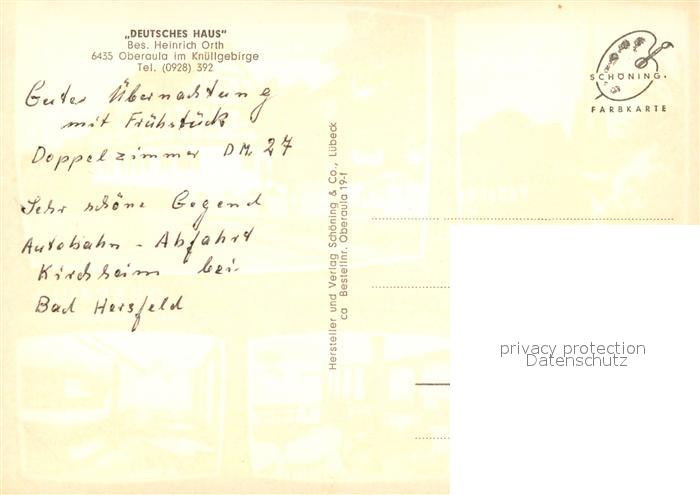 „DEUTSCHES HAUS"
Bes. Heinrich Orth
6435 Oberaula im Knüllgebirge
Tel. (0928) 392
Gutes Übernachtung
mit Frühstück
Doppelzimmer DM. 27
Sehr schöne Gegend
Autobahn - Abfahrt
Kirchheim bei
Bad Hersfeld
Hersteller und Verlag Schöning & Co., Lübeck
ca Bestellnr. Oberaula 19-f
SCHÖNING.
FARBKARTE
privacy protection
Datenschutz